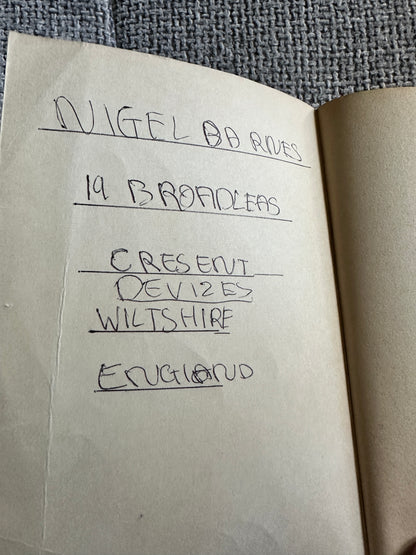 NIGEL BARNES
19 BROADLEAS
CRESENT
DEVIZES
WILTSHIRE
ENGLAND